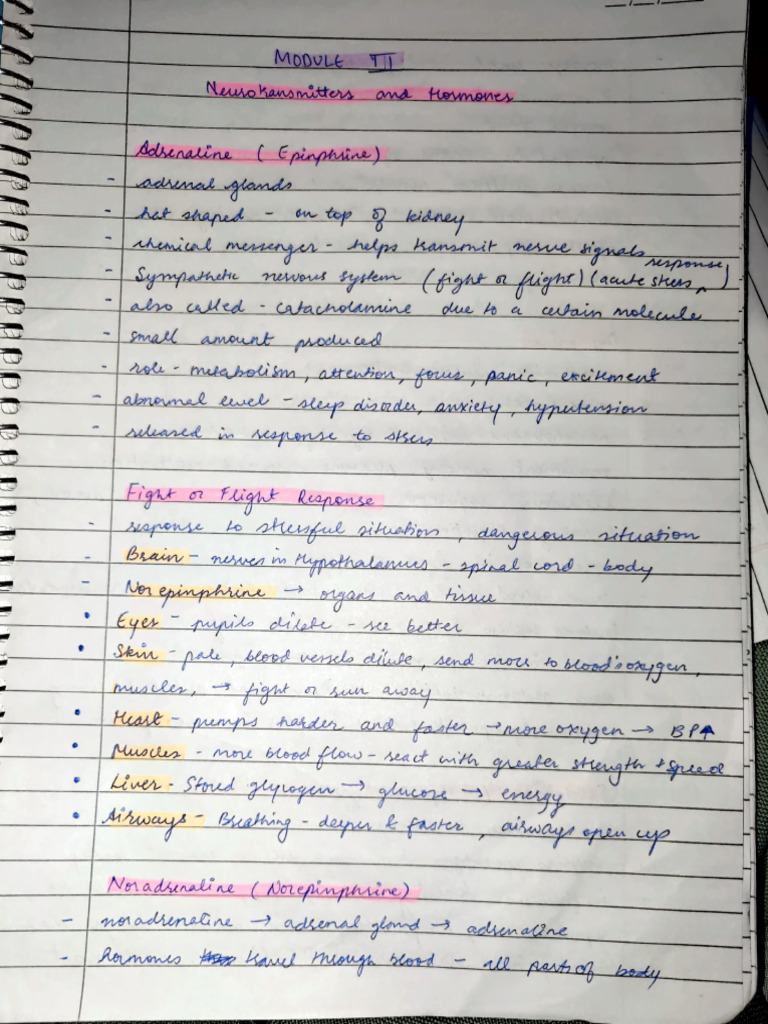 MODULE III
Neurotransmitters and Hormones
Adrenaline ( Epinphrine)
- adrenal glands
- hat shaped - on top of kidney
- chemical messenger - helps transmit nerve signals
- Sympathetic nervous system (fight or flight) (acute stress response)
- also called - catacholamine due to a certain molecule
- small amount produced
- role - metabolism, attention, focus, panic, excitement
- abnormal level - sleep disorder, anxiety, hypertension
- released in response to stress
Fight or Flight Response
- response to stressful situation, dangerous situation
- Brain - nerves in Hypothalamus - spinal cord - body
- Norepinphrine → organs and tissue
• Eyes - pupils dilate - see better
• Skin - pale, blood vessels dilute, send more to blood's oxygen,
muscles, → fight or run away
• Heart - pumps harder and faster → more oxygen → BP↑
• Muscles - more blood flow - react with greater strength + speed
• Liver - Stored glycogen → glucose → energy
• Airways - Breathing - deeper & faster, airways open up
Noradrenaline (Norepinphrine)
- noradrenaline → adrenal gland → adrenaline
- hormones travel through blood - all parts of body